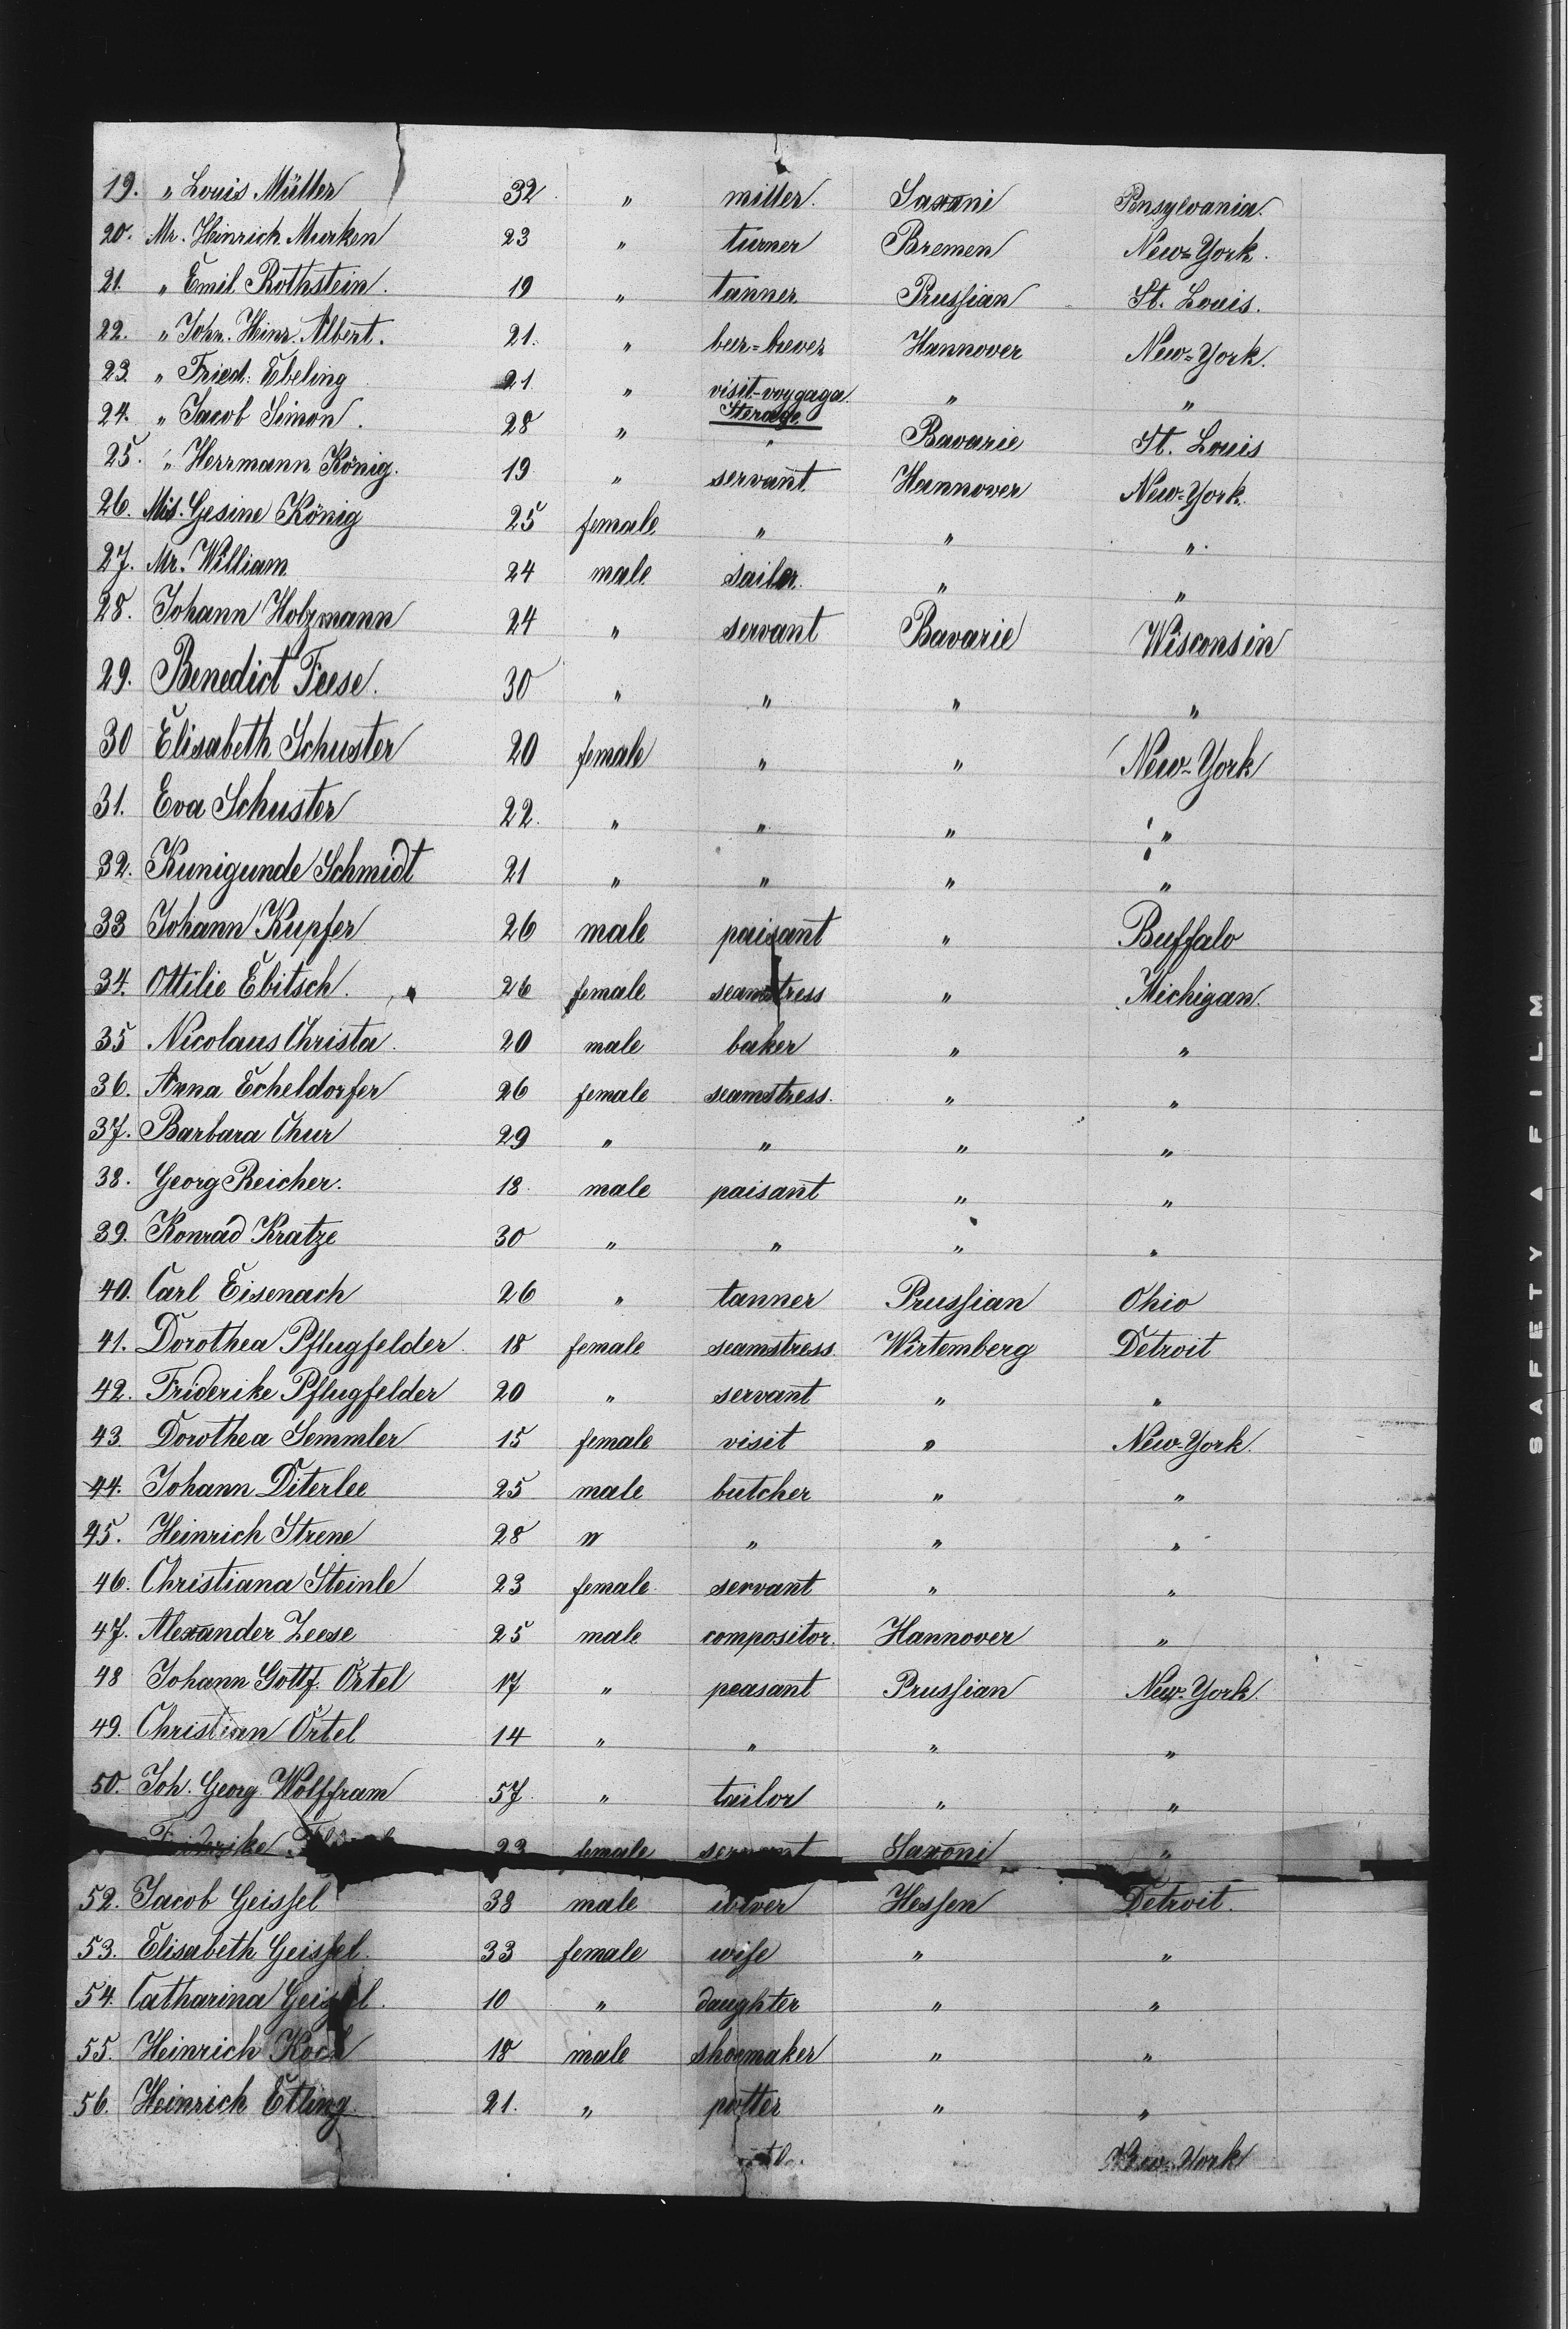 19. " Louis Müller 32 " miller. Saxoni Pensylvania.
20. Mr. Heinrich Murken 23 " turner Bremen New=York.
21. " Emil Rothstein. 19 " tanner Prussian St. Louis.
22. " Johr. Hinr. Albert. 21. " beer=brever Hannover New=York.
23. " Fried: Ebeling 21 " visit-voygaga " "
Sterage
24. " Jacob Simon. 28 " " Bavarie St. Louis
25. " Herrmann König. 19 " servant Hannover New-York.
26. Mis. Gesine König 25 female " " "
27. Mr. William 24 male sailor " "
28. Johann Holzmann 24 " servant Bavarie Wisconsin
29. Benedict Feese. 30 " " " "
30 Elisabeth Schuster 20 female " " New-York
31. Eva Schuster 22. " " " "
32. Kunigunde Schmidt 21 " " " "
33 Johann Kupfer 26 male paisant " Buffalo
34. Ottilie Ebitsch. 26 female seamstress " Michigan.
35 Nicolaus Christa. 20 male baker " "
36. Anna Echeldorfer 26 female seamstress. " "
37. Barbara Chur 29 " " " "
38. Georg Reicher. 18. male paisant " "
39. Konrad Kratze 30 " " " "
40. Carl Eisenach 26 " tanner Prussian Ohio
41. Dorothea Pflugfelder 18 female seamstress Wirtemberg Detroit
42. Friderike Pflugfelder 20 " servant " "
43. Dorothea Semmler 15 female visit " New-York.
44. Johann Diterlee 25 male butcher " "
45. Heinrich Strene 28 " " " "
46. Christiana Steinle 23 female servant " "
47. Alexander Zeese 25 male compositor. Hannover "
48 Johann Gottf. Örtel 17 " peasant Prussian New-York.
49. Christian Örtel 14 " " " "
50. Joh. Georg Wolffram 57 " tailor " "
Friderike 23 female servant Saxoni "
52. Jacob Geissel 33 male wiver Hessen Detroit.
53. Elisabeth Geissel. 33 female wife " "
54. Catharina Geissel. 10 " daughter " "
55. Heinrich Koch 18 male shoemaker " "
56. Heinrich Etling 21. " potter " "
New-York
SAFETY A FILM